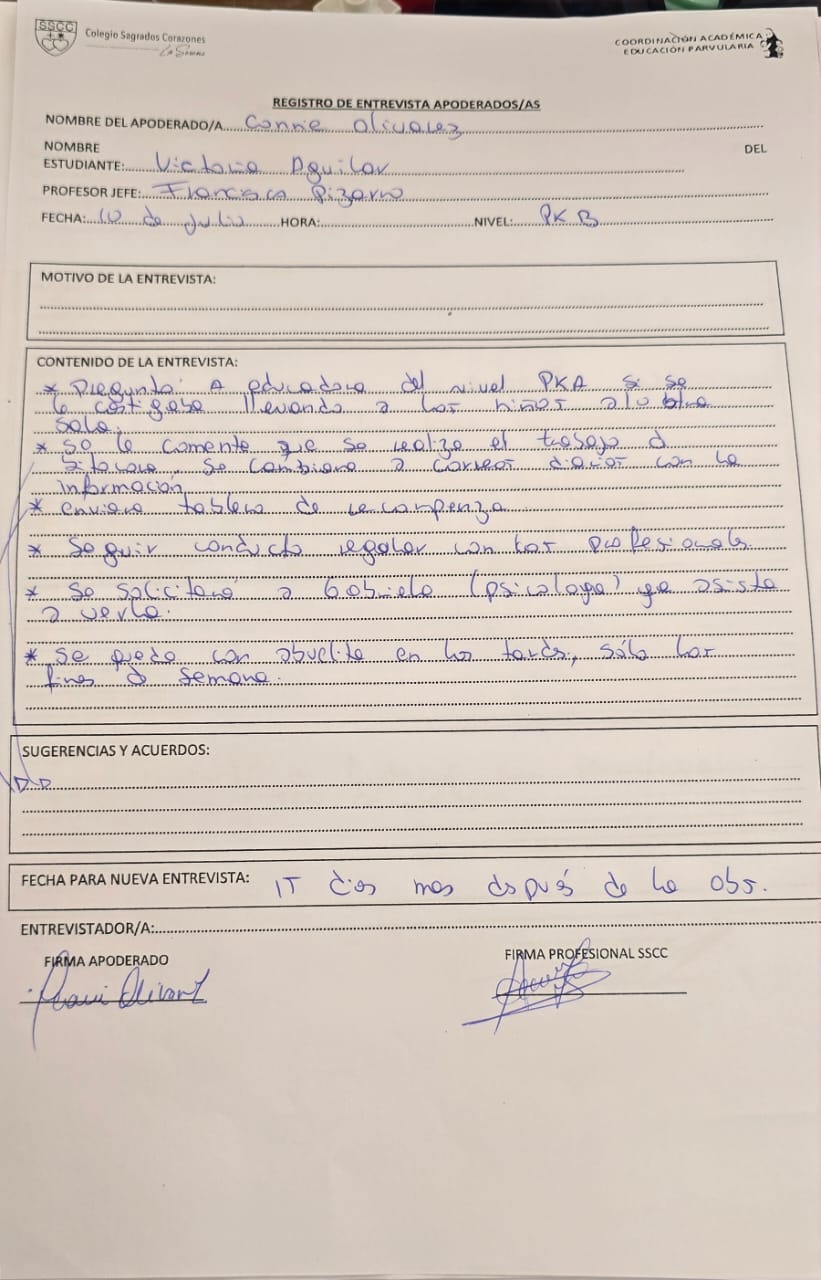 SSCC
Colegio Sagrados Corazones
La Serena
COORDINACIÓN ACADÉMICA
EDUCACIÓN PARVULARIA
REGISTRO DE ENTREVISTA APODERADOS/AS
NOMBRE DEL APODERADO/A Connie Olivarez
NOMBRE DEL
ESTUDIANTE: Victoria Aguilar
PROFESOR JEFE: Francisca Pizarro
FECHA: 10 de Julio HORA: NIVEL: PKB
MOTIVO DE LA ENTREVISTA:
CONTENIDO DE LA ENTREVISTA:
* Pregunta: A educadora del nivel PKA si se
le castigaba llevando a los niños a
sala.
* Se le comenta que se realiza el trabajo d
se cambiara a correos diarios con la
información
* enviara tablero de recompenza
* Seguir conducto regular con los profesionales.
* Se solicitará a Gabriela (psicologa) que asista
a verla.
* Se queda con abuelita en las tardes, sólo los
fines d semana.
SUGERENCIAS Y ACUERDOS:
FECHA PARA NUEVA ENTREVISTA: dias mas después de la obs.
ENTREVISTADOR/A:
FIRMA APODERADO
FIRMA PROFESIONAL SSCC